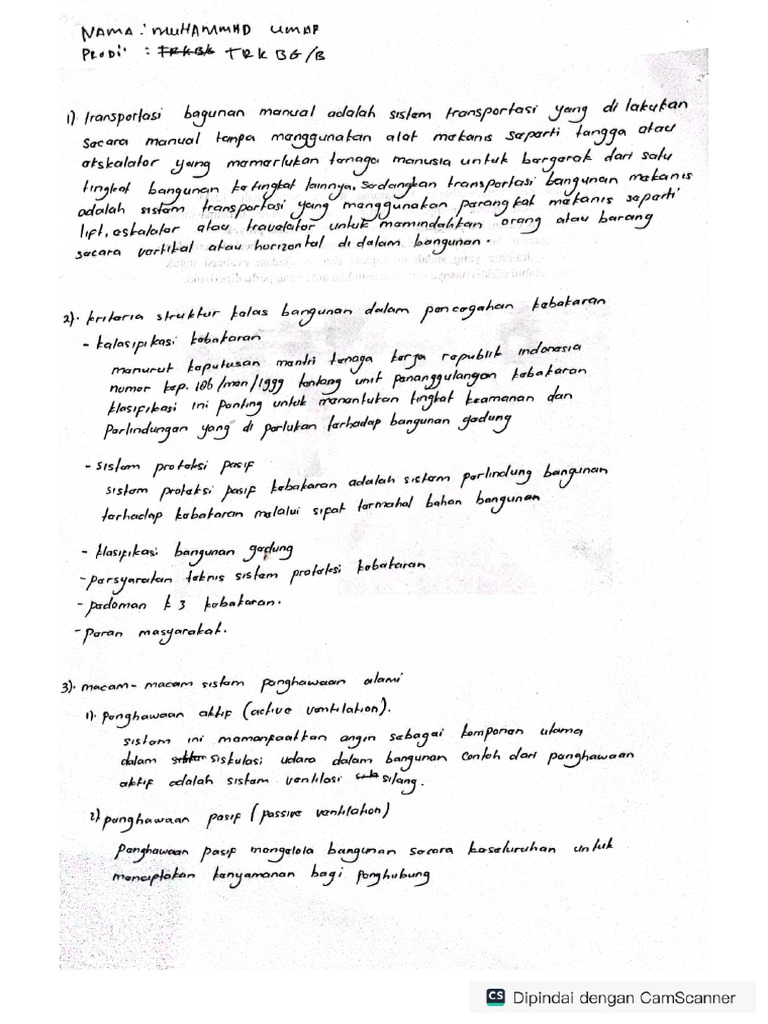 NAMA : MUHAMMAD UMAR
PRODI : TRKBG TRK BG/B
1) transportasi bagunan manual adalah sistem transportasi yang di lakukan
secara manual tanpa menggunakan alat mekanis seperti tangga atau
ekskalator yang memerlukan tenaga manusia untuk bergerak dari satu
tingkat bangunan ke tingkat lainnya, sedangkan transportasi bangunan mekanis
adalah sistem transportasi yang menggunakan perangkat mekanis seperti
lift, eskalator atau travelator untuk memindahkan orang atau barang
secara vertikal atau horizontal di dalam bangunan.
2). kriteria struktur kelas bangunan dalam pencegahan kebakaran
- kalasipikasi kebakaran
menurut keputusan mentri tenaga kerja republik indonesia
nomor kep. 186/men/1999 tentang unit penanggulangan kebakaran
klasifikasi ini penting untuk menentukan tingkat keamanan dan
perlindungan yang di perlukan terhadap bangunan gedung
- sistem proteksi pasif
sistem proteksi pasif kebakaran adalah sistem perlindung bangunan
terhadap kebakaran melalui sipat termahal bahan bangunan
- klasifikasi bangunan gedung
- persyaratan teknis sistem proteksi kebakaran
- pedoman k3 kebakaran.
- peran masyarakat.
3). macam-macam sistem penghawaan alami
1). penghawaan aktif (active ventilation).
sistem ini memanfaatkan angin sebagai komponen utama
dalam siskulasi udara dalam bangunan contoh dari penghawaan
aktif adalah sistem ventilasi silang.
2) penghawaan pasif (passive ventilation)
penghawaan pasif mengelola bangunan secara keseluruhan untuk
menciptakan kenyamanan bagi penghubung
CS Dipindai dengan CamScanner